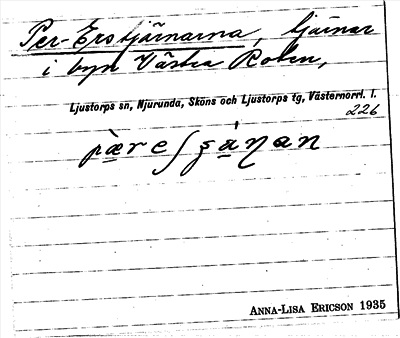 Per-Erstjärnarna, tjärnar
i byn Västra Roten,
Ljustorps sn, Njurunda, Sköns och Ljustorps tg, Västernorrl. l.
226
ANNA-LISA ERICSON 1935